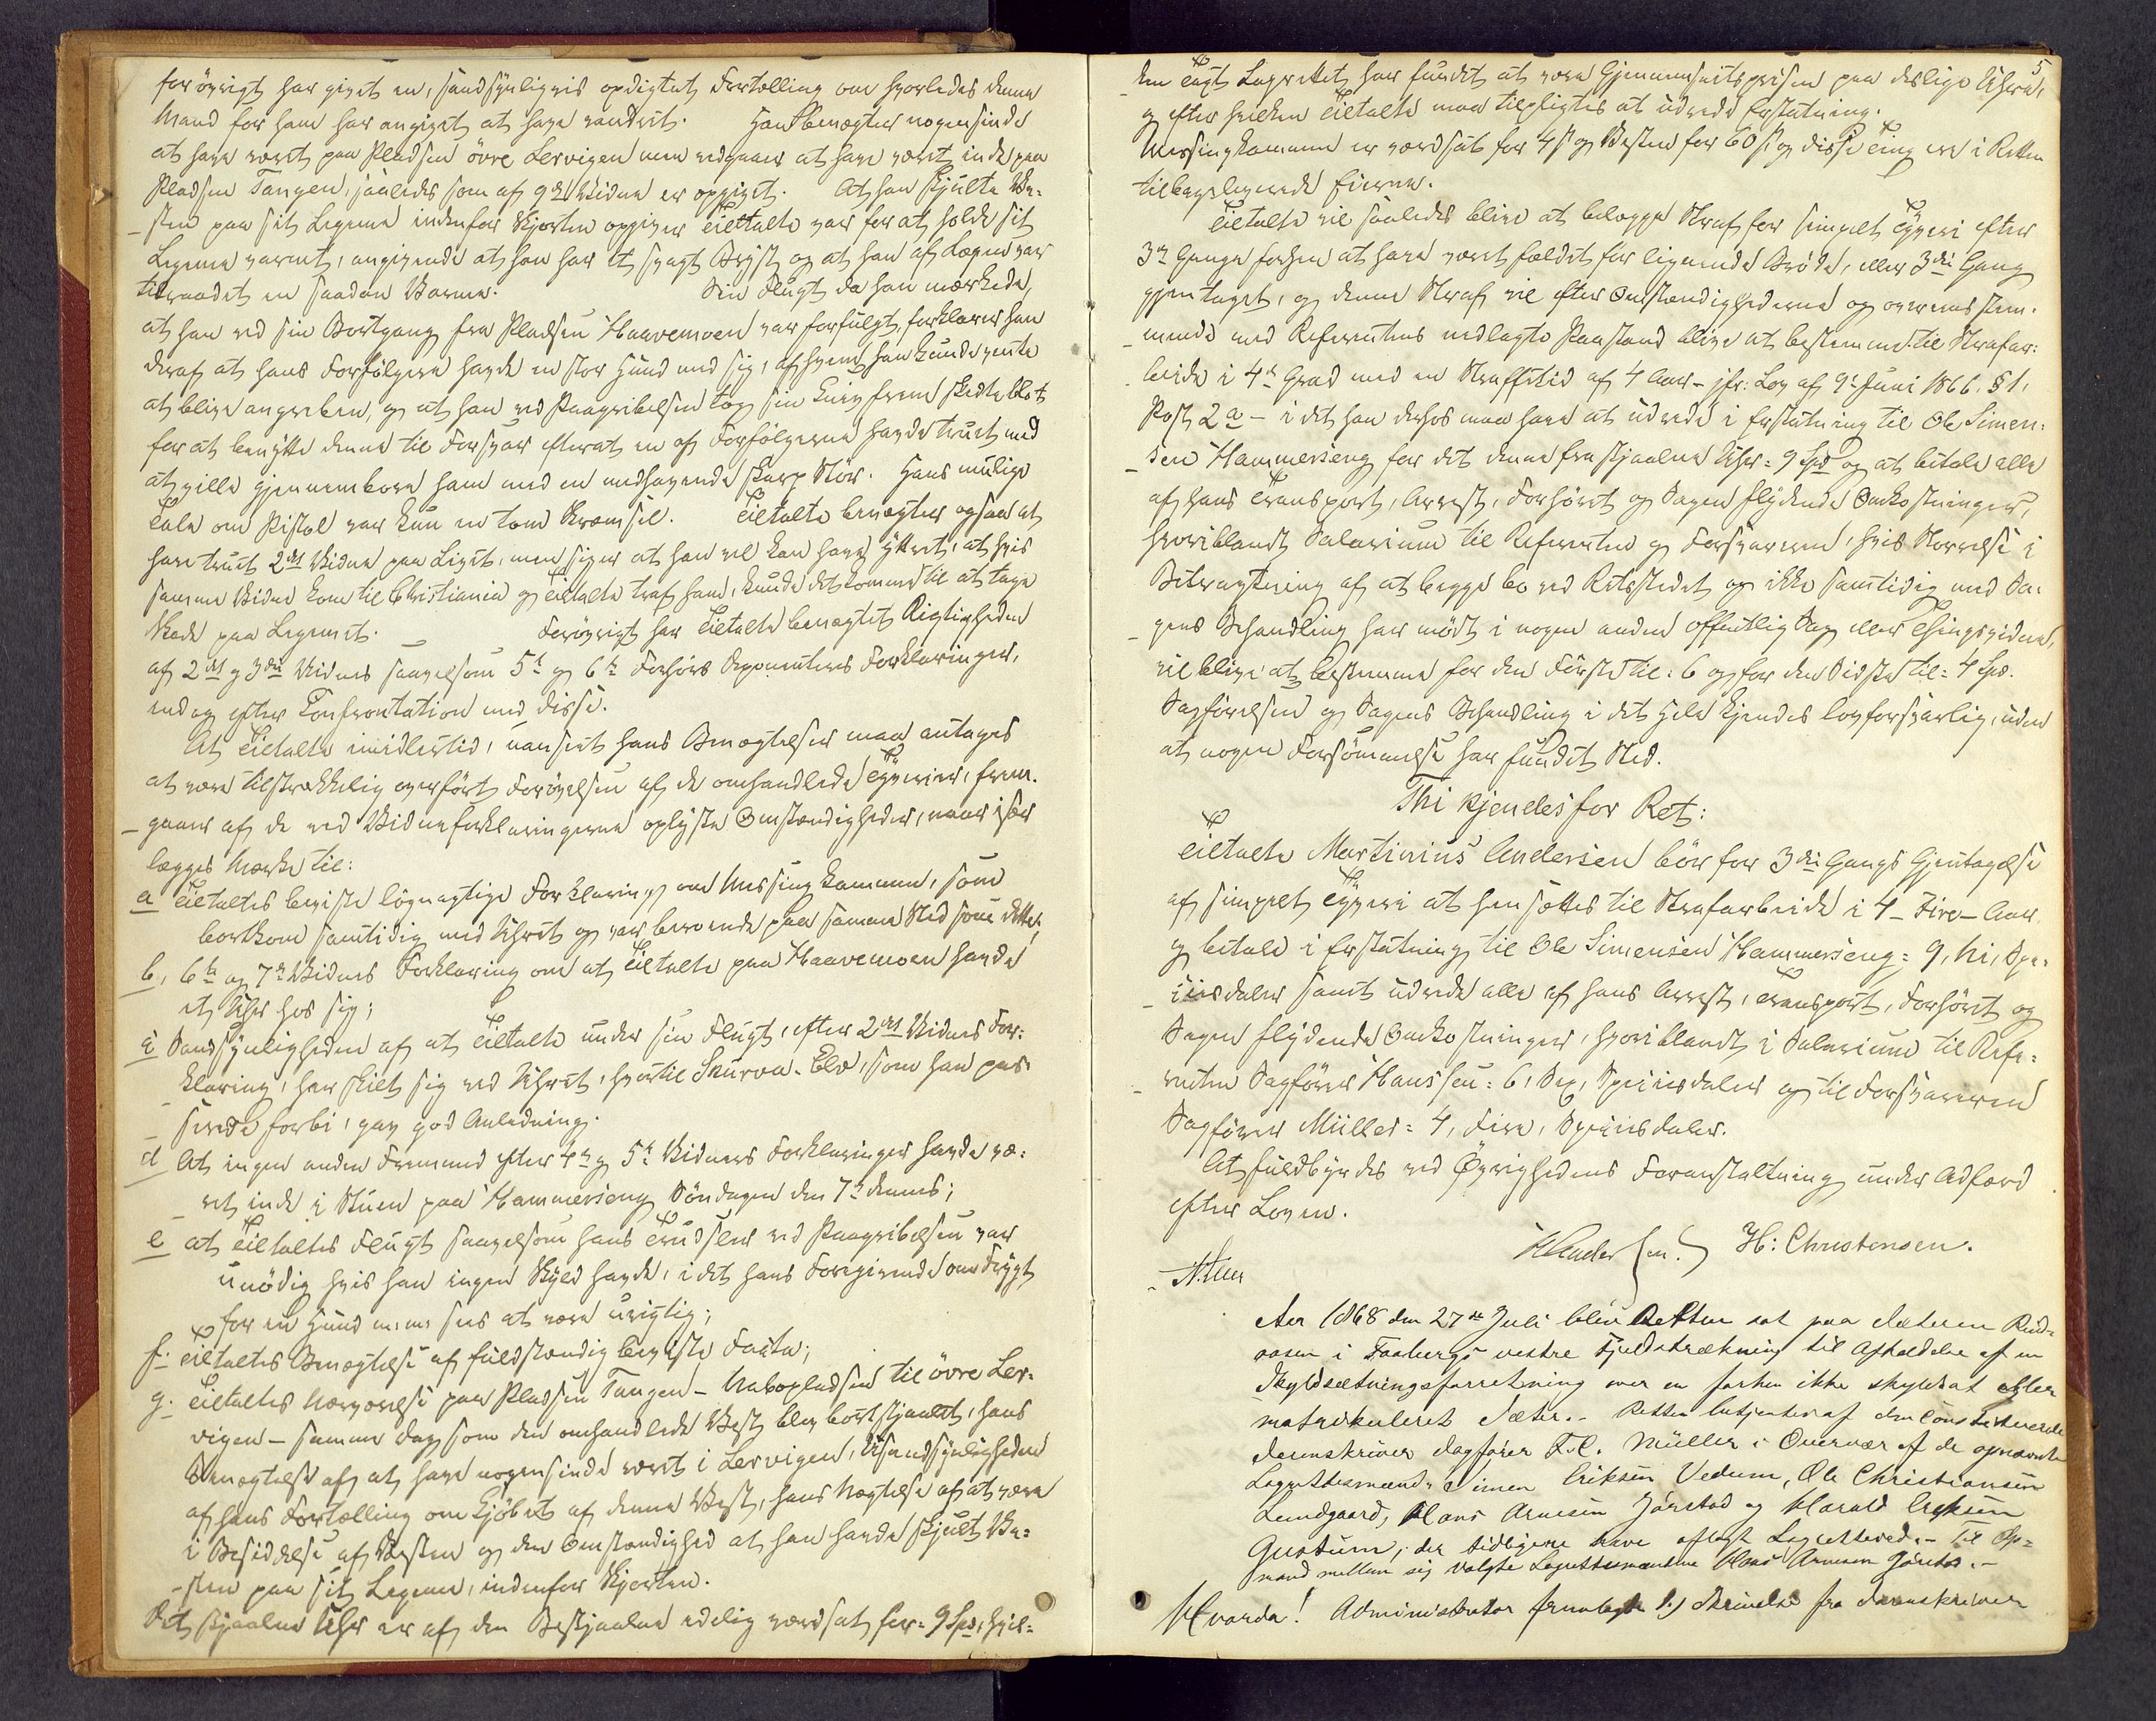 forövrigt har givet en, sandsynligvis opdigtet Fortælling om hvorledes denne
Mand for ham har angivet at have vandret. Han benægter nogensinde
at have været paa Pladsen övre Lervigen men vedgaaer at have været inde paa
Pladsen Tangen, saaledes som af 9de Vidne er opgivet. At han skjulte Ve-
sten paa sit Legeme indenfor Skjorten opgiver Tiltalte var for at holde sit
Legeme varmt, angivende at han har et svagt Bryst og at han af Lægen var
tilraadet en saadan Varme. Sin Flugt da han mærkede,
at han ved sin Bortgang fra Pladsen Haavemoen var forfulgt, forklarer han
deraf at hans Forfölgere havde en stor Hund med sig, af hvem han kunde vente
at blive angreben, og at han ved Paagribelsen tog sin Kniv frem skedte blot
for at benytte denne til Forsvar efterat en af Forfölgerne havde truet med
at ville gjennembore ham med en medhavende skarp Stör. Hans mulige
Tale om Pistol var kun en tom Skræmsel. Tiltalte benægter ogsaa at
have truet 2det Vidne paa Livet, men siger at han vel kan have yttret, at hvis
samme Vidne kom til Christiania og Tiltalte traf ham, kunde det komme til at tage
Skade paa Legemet. Forövrigt har Tiltalte benægtet Rigtigheden
af 2det og 3die Vidnes saavelsom 5te og 6te Forhörs Deponenteres Forklaringer,
endog efter Confrontation med disse.
At Tiltalte imidlertid, uanseet hans Benægtelser maa antages
at være tilstrækkelig overfört Forövelsen af de omhandlede Tyverier, frem-
gaaer af de ved Vidneforklaringerne oplyste Omstændigheder, naar især
lægges Mærke til:
a Tiltaltes beviste lögnagtige Forklaring om Messingkammen, som
bortkom samtidig med Uhret og var beroende paa samme Sted som dette;
b, 6te og 7de Vidnes Forklaring om at Tiltalte paa Haavemoen havde
et Uhr hos sig;
c Sandsynligheden af at Tiltalte under sin Flugt, efter 2det Vidnes For-
klaring, har skilt sig ved Uhret, hvortil Skurva-Elv, som han pas-
serede forbi, gav god Anledning.
d At ingen anden Fremmed efter 4de og 5te Vidners Forklaringer havde væ-
ret inde i Stuen paa Hammerseng Söndagen den 7de dennes;
e at Tiltaltes Flugt saavelsom hans Trudsler ved Paagribelsen var
unödig hvis han ingen Skyld havde, idet hans Foregivende om Frygt
for en Hund m.m. sees at være urigtig;
f. Tiltaltes Benægtelse af fuldstændig beviste Facta;
g. Tiltaltes Nærværelse paa Pladsen Tangen – Nabopladsen til övre Ler-
vigen – samme Dag som den omhandlede Vest blev bortstjaalet, hans
Benægtelse af at have nogensinde været i Lervigen, Usandsynligheden
af hans Fortælling om Kjöbet af denne Vest, hans Nægtelse af at være
i Besiddelse af Vesten og den Omstændighed at han havde skjult Ve-
sten paa sit Legeme, indenfor Skjorten.
Det stjaalne Uhr er af den Bestjaalne edelig værdsat for = 9 Spd, hvil-
5
ken Tagt Lagrettet har fundet at være Gjennemsnitsprisen paa deslige Uhre,
og efter hvilken Tiltalte maa tilpligtes at udrede Erstatning.
Messingkammen er værdsat for 4 s og Vesten for 60 s og disse Ting ere i Retten
tilbageleverede Eierne.
Tiltalte vil saaledes blive at belægge Straf for simpelt Tyveri efter
3de Gange forhen at have været fældet for lignende Bröde, eller 3die Gang
gjentaget, og denne Straf vil efter Omstændighederne og overensstem-
mende med Referentens nedlagte Paastand blive at bestemme til Strafar-
beide i 4de Grad med en Straffetid af 4 Aar – jfr. Lov af 9de Juni 1866. § 1,
Post 2 a – idet han derhos maa have at udrede i Erstatning til Ole Simen-
sen Hammerseng for det denne fra stjaalne Uhr = 9 Spd og at betale alle
af hans Transport, Arrest, Forhöret og Sagen flydende Omkostninger,
hvoriblandt Salarium til Referenten og Forsvareren, hvis Störrelse i
Betragtning af at begge bo ved Retsstedet og ikke samtidig med Sa-
gens Behandling har mödt i nogen anden offentlig Sag eller Thingsvidne,
vil blive at bestemme for den Förste til: 6 og for den Sidste til = 4 Spd.
Sagförelsen og Sagens Behandling i det Hele kjendes lovforsvarlig, uden
at nogen Forsömmelse har fundet Sted.
Thi kjendes for Ret:
Tiltalte Martinius Andersen bör for 3die Gangs Gjentagelse
af simpelt Tyveri at hensættes til Strafarbeide i 4 – Fire – Aar
og betale i Erstatning til Ole Simensen Hammerseng = 9, Ni, Spe-
ciesdaler samt udrede alle af hans Arrest, Transport, Forhöret og
Sagen flydende Omkostninger, hvoriblandt i Salarium til Refe-
renten Sagförer Hanssen = 6, Sex, Speciesdaler og til Forsvareren
Sagförer Müller = 4, Fire, Speciesdaler.
At fuldbyrdes ved Övrighedens Foranstaltning under Adfærd
efter Loven.
H: Christensen.
Aar 1868 den 27de Juli blev Retten sat paa Sæteren Rind-
aasen i Faabergs vestre Fjeldstrækning til Afholdelse af en
Skyldsætningsforretning over en forhen ikke skyldsat eller
matrikuleret Sæter. – Retten betjentes af den constituerede
Sorenskriver Sagförer F. C. Müller i Overvær af de opnævnte
Lagrettesmænd: Simen Eriksen Vedum, Ole Christiansen
Lundgaard, Hans Arnesen Jörstad og Harald Eriksen
Gustum, der tidligere have aflagt Lagretteed. – Til Op-
mand mellem sig valgte Lagrettesmændene Hans Arnesen Jörstad. –
Hvorda! Administrator fremlagde 1.) Skrivelse fra Sorenskriver